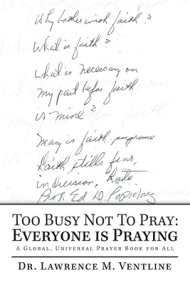 Why bother with faith?
What is faith?
What is necessary on
my part before faith
is mine?
Mary is faith supreme
Faith stills fears,
indecision,
Prof. Ed D.
TOO BUSY NOT TO PRAY:
EVERYONE IS PRAYING
A GLOBAL, UNIVERSAL PRAYER BOOK FOR ALL
DR. LAWRENCE M. VENTLINE